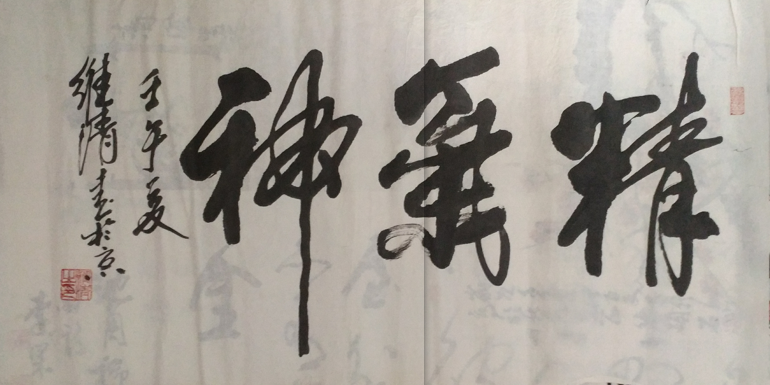 精氣神
壬午夏
维清书於京